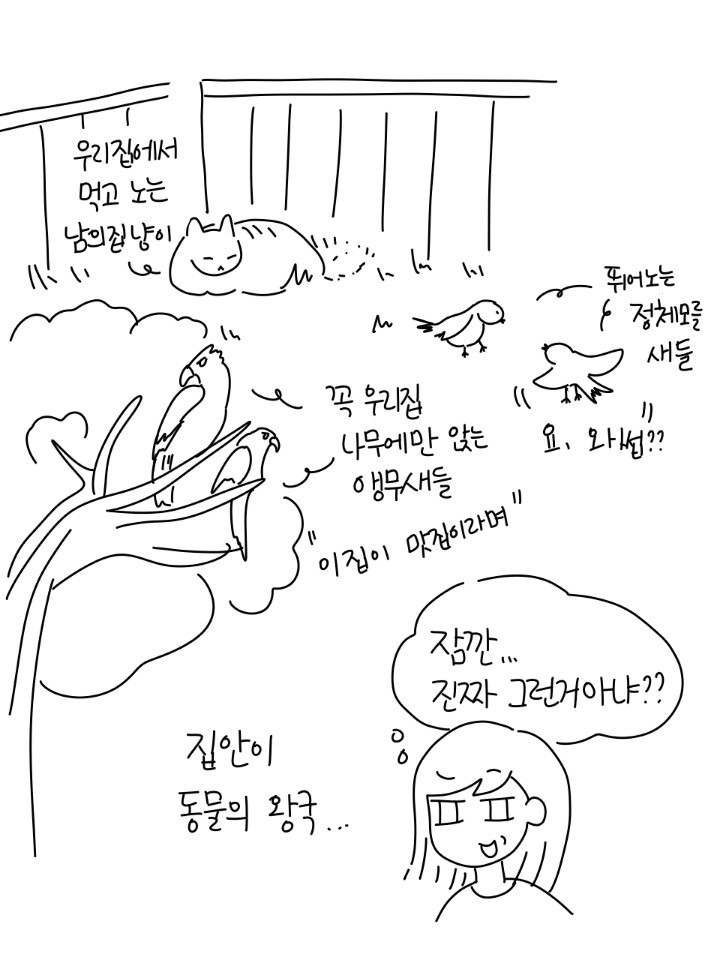 우리집에서
먹고 노는
남의집냥이
뛰어노는
정체모를
새들
꼭 우리집
나무에만 앉는
앵무새들
요, 와썹??
"이집이 맛집이라며"
잠깐...
진짜 그런거아냐??
집안이
동물의 왕국...